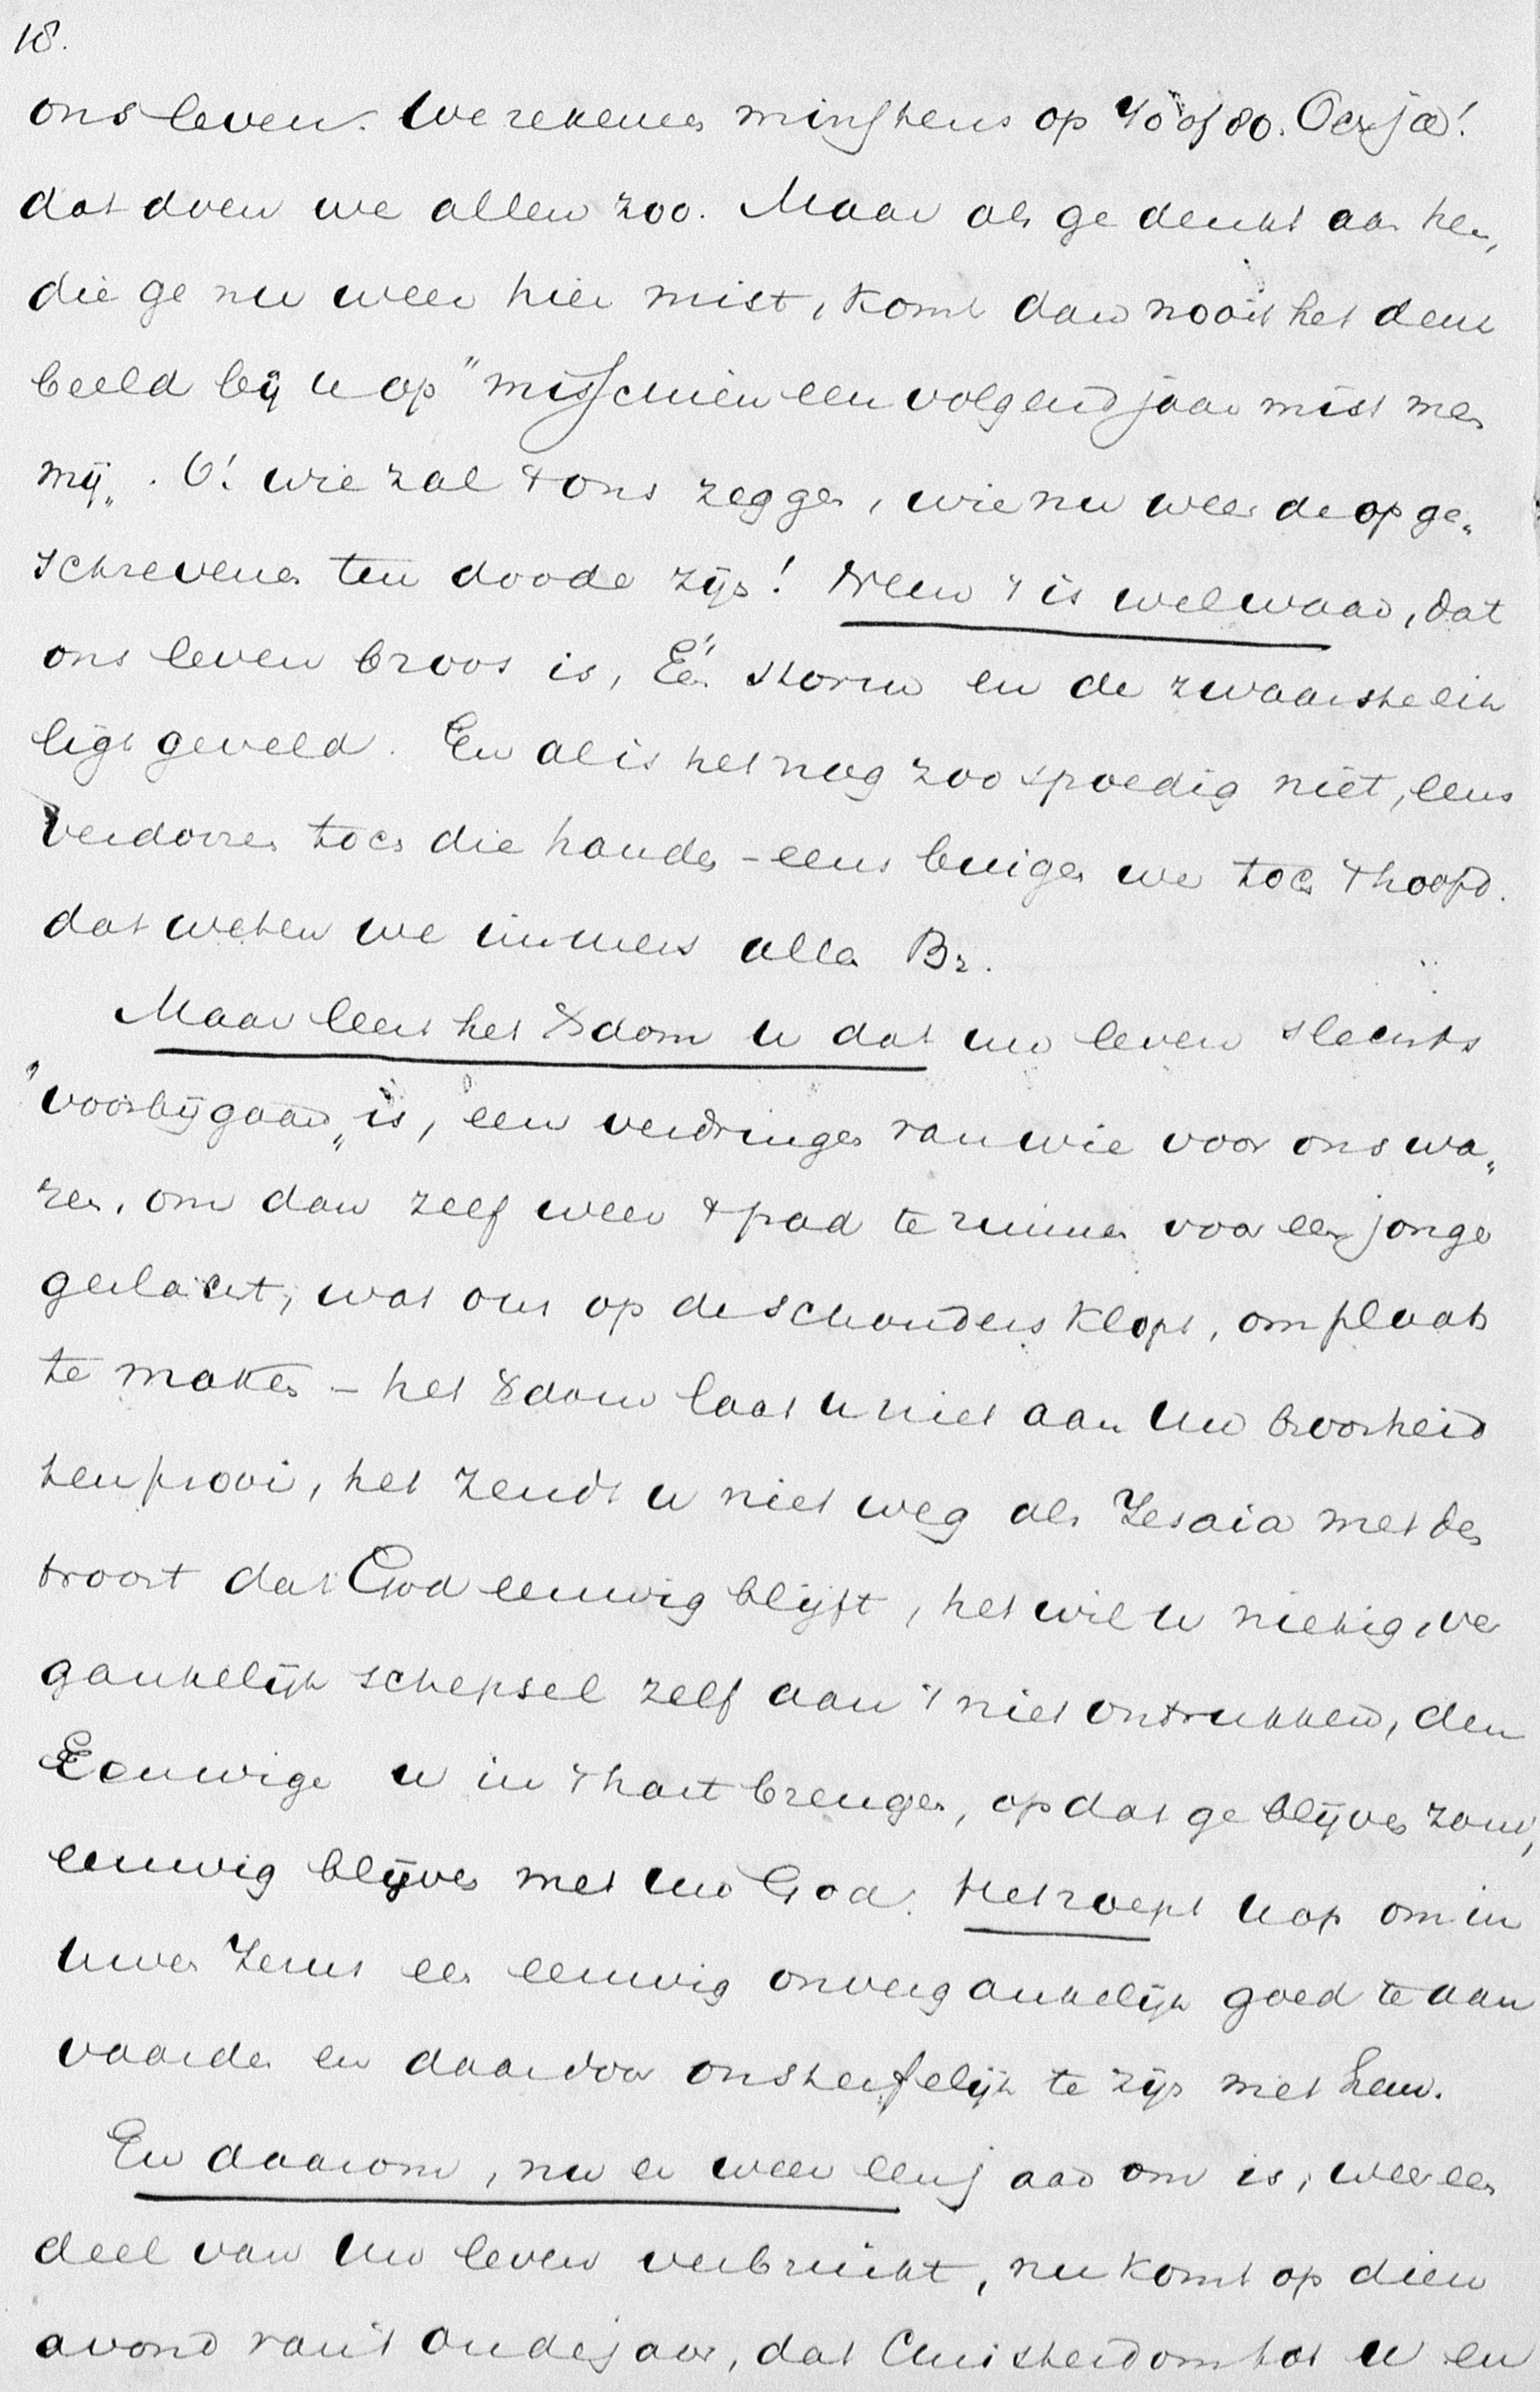 18.
ons leven. We rekenen minstens op 70 of 80. Och ja!
dat doen we allen zoo. Maar als ge denkt aan hen,
die ge nu weer hier mist, komt dan nooit het denk
beeld bij u op "misschien een volgend jaar mist men
mij". O! wie zal 't ons zeggen, wie nu weer de opge„
schrevenen ten doode zijn! Neen 't is wel waar, dat
ons leven broos is, Eén storm en de zwaarste eik
ligt geveld. En al is het nog zoo spoedig niet, eens
verdorren toch die handen - eens buigen we toch 't hoofd.
dat weten we immers allen Br.
Maar leert het Xdom u dat uw leven slechts
"voorbijgaan" is, een verdringen van wie voor ons wa„
ren, om dan zelf weer 't pad te ruimen voor een jonger
geslacht, wat ons op de schouders klopt, om plaats
te maken - het Xdom laat u niet aan uw broosheid
ten prooi, het zendt u niet weg als Jesaia met den
troost dat God eeuwig blijft, het wil u nietig, ver
gankelijk schepsel zelf aan 't niet ontrukken, den
Eeuwige u in 't hart brengen, opdat ge blijven zoudt,
eeuwig blijven met uw God. Het roept u op om in
uwen Jezus een eeuwig onvergankelijk goed te aan
vaarden en daardoor onsterfelijk te zijn met hem.
En daarom, nu er weer een jaar om is, weer een
deel van uw leven verbruikt, nu komt op dien
avond van 't oudejaar, dat Christendom tot u en